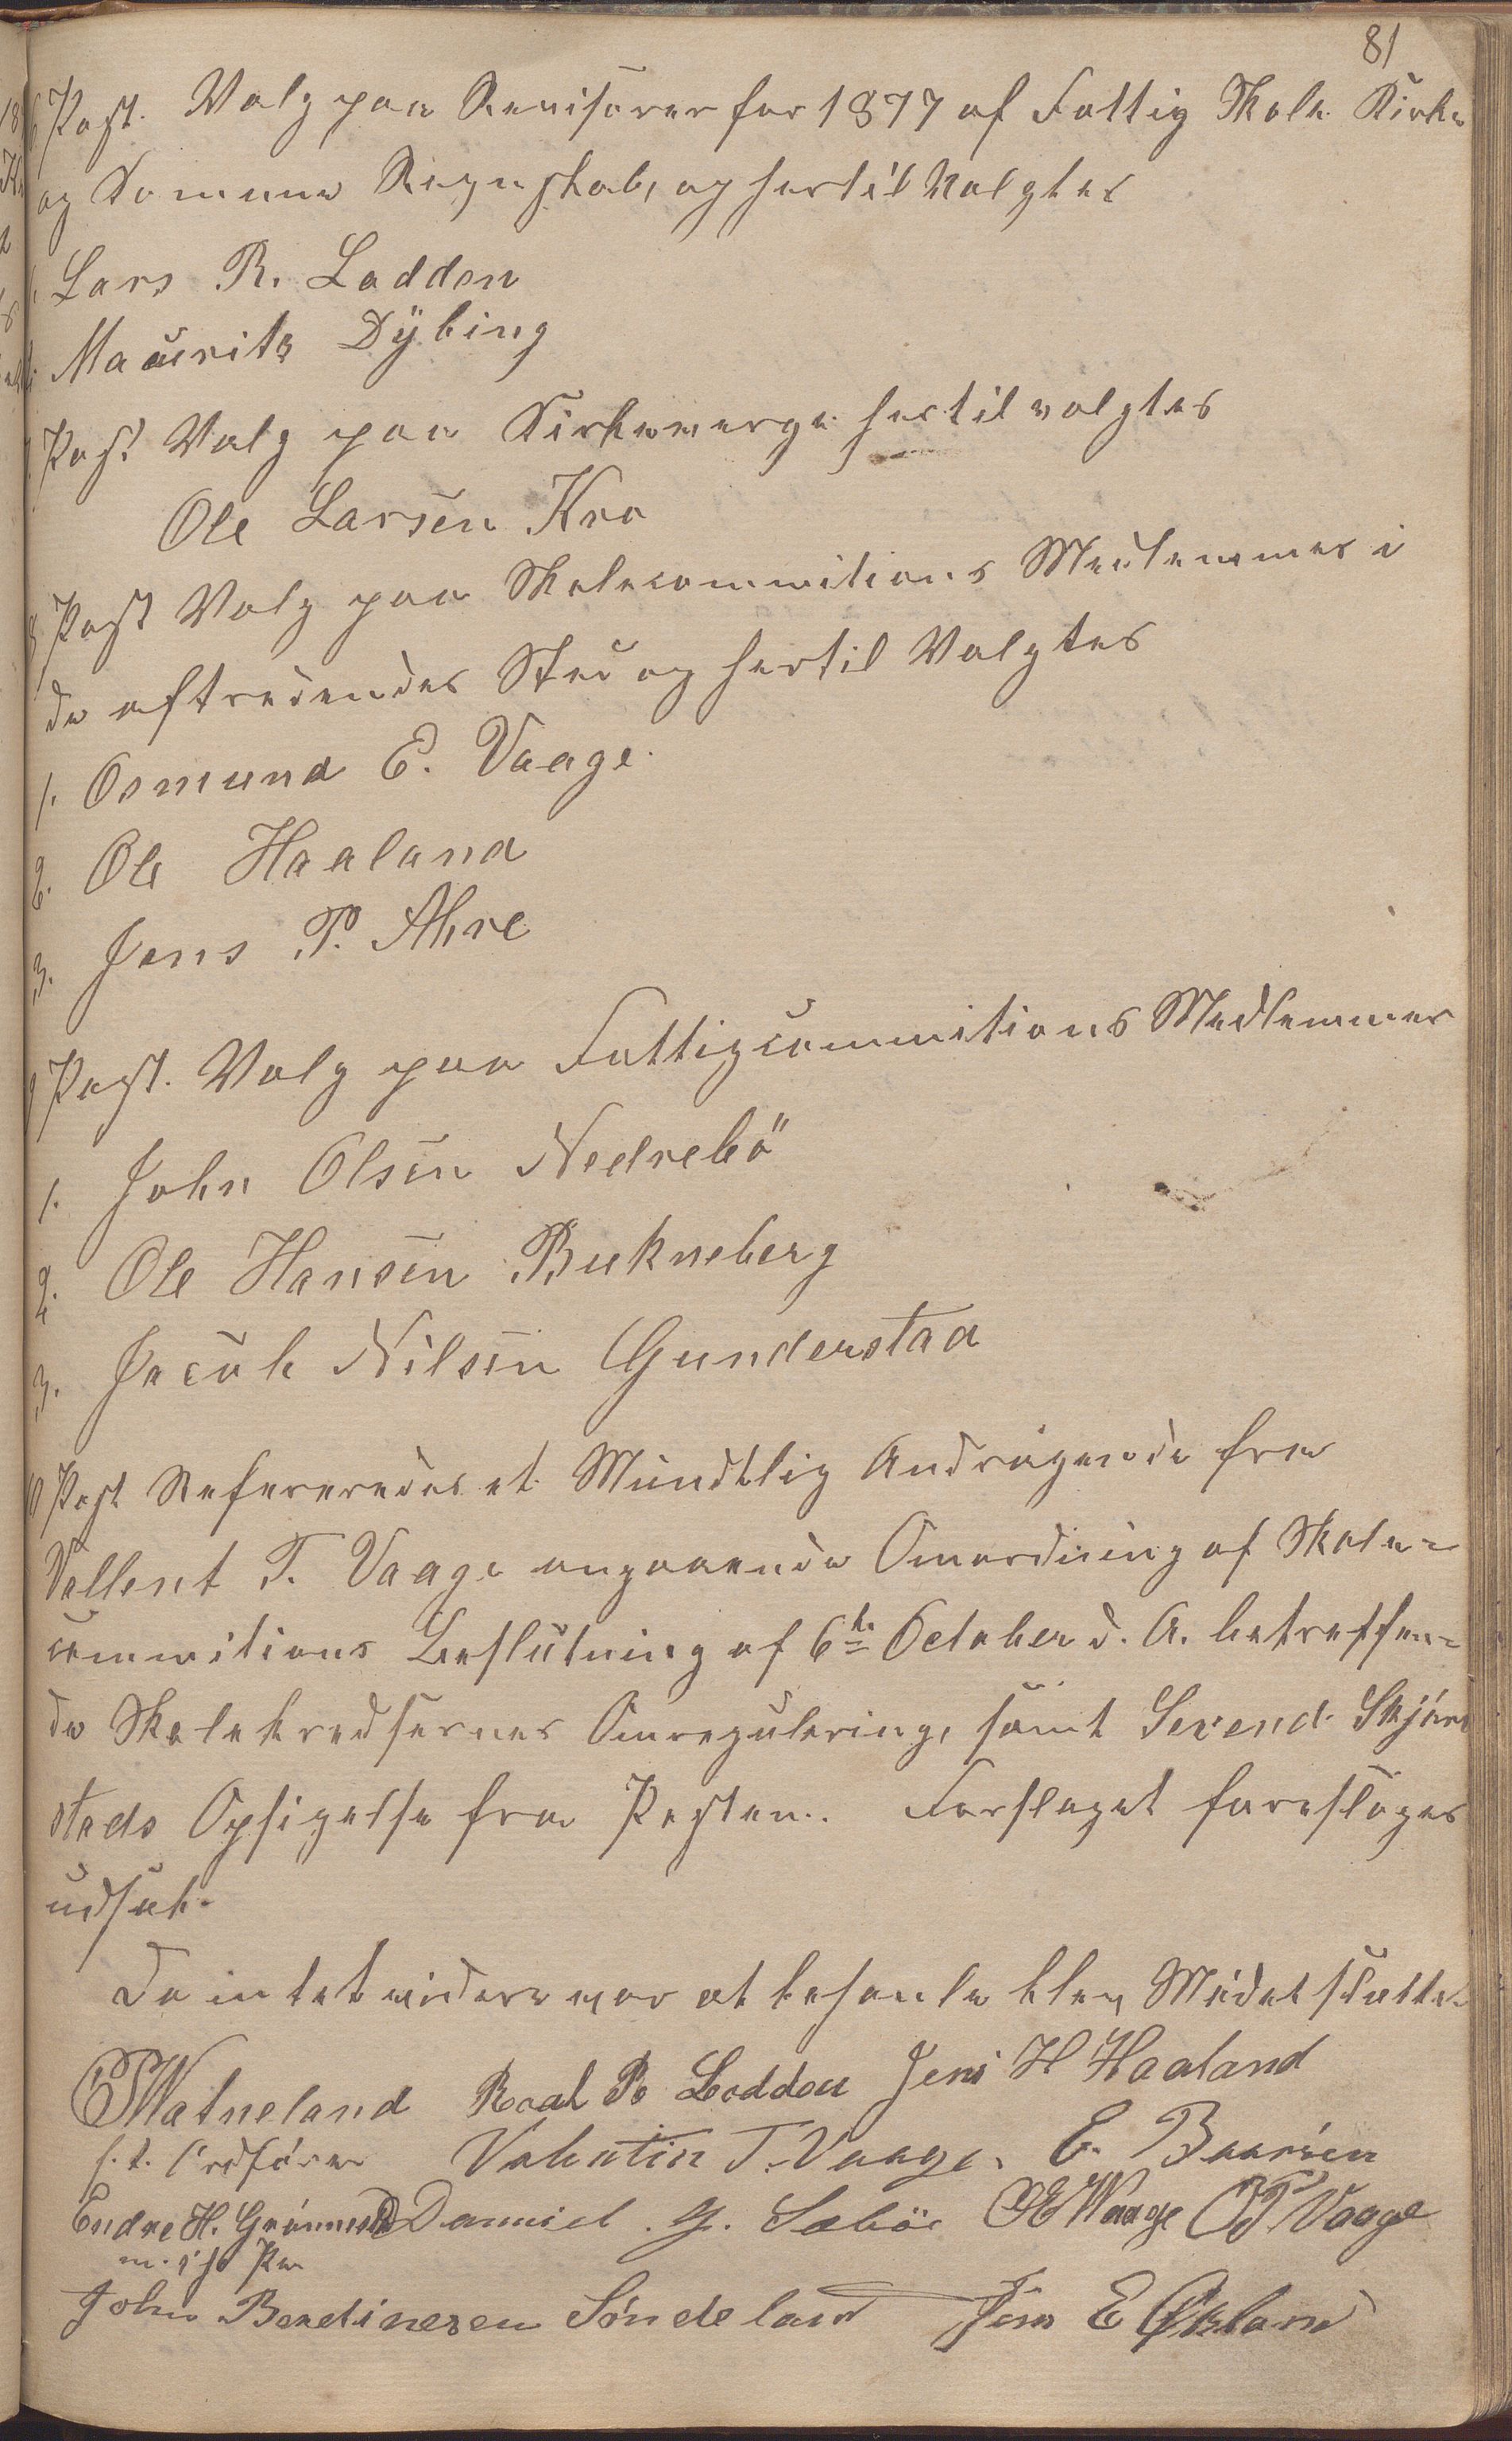 81
6 Post. Valg paa Revisorer for 1877 af Fattig Skole Kirke
og Comune Regnskab, og hertil Valgtes
Lars R. Lodden
Mauritz Dÿbing
Post Valg paa Kirkeverge hertil valgtes
Ole Larsen Kro
8 Post Valg paa Skolecommitions Medlemmer i
de aftredendes Sted og hertil Valgtes
1. Osmund E. Vaage.
2. Ole Haaland
3. Jens P. Ahre
9 Post. Valg paa Fattigcommitions Medlemmer
1. John Olsen Nedrebö
2. Ole Hansen Bukneberg
3. Jacob Nilsen Gunderstad
10 Post Refereredes et Mundtlig Andragende fra
Vallent T. Vaage angaaende Omordning af Skole-
commitions Beslutning af 6te October d. A. betreffen-
de Skolekredsernes Omregulering, samt Serend Skjær
stads Opsigelse fra Posten. Forslaget foresloges
udsat.
Da intet videre var at behandle blev Mødet slutte.
Watneland Roal R. Lodden Jens H Haaland
f. t. Ordförer Valentin T. Vaage. E. Baarsen
Endre H. Grønnes Daniel. G. Sæbøe OE Waage OT Vaage
m. i. p. Pen
John Bendixesen Söndeland Jens E Økland